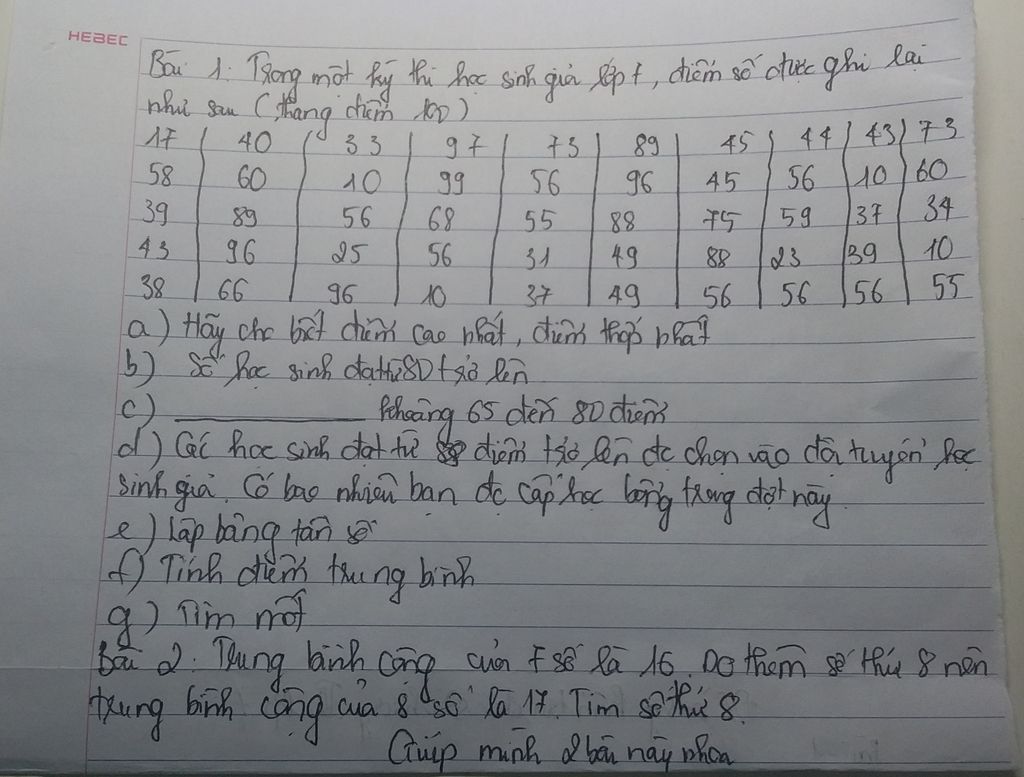 HEBEC
Bài 1: Trong một kỳ thi học sinh giỏi lớp 7, điểm số được ghi lại
như sau (thang điểm 100)
17 40 33 97 73 89 45 44 43 73
58 60 10 99 56 96 45 56 10 60
39 89 56 68 55 88 75 59 37 34
43 96 25 56 31 49 88 23 39 10
38 66 96 10 37 49 56 56 56 55
a) Hãy cho biết điểm cao nhất, điểm thấp nhất
b) Số học sinh đạt từ 80 trở lên
c) ________ khoảng 65 đến 80 điểm
d) Các học sinh đạt từ điểm trở lên đc chọn vào đội tuyển học
sinh giỏi. Có bao nhiêu bạn đc cấp học bổng trong đợt này.
e) Lập bảng tần số
f) Tính điểm trung bình
g) Tìm mốt
Bài 2: Trung bình cộng của 7 số là 16. Do thêm số thứ 8 nên
trung bình cộng của 8 số là 17. Tìm số thứ 8.
Giúp mình 2 bài này nhoa